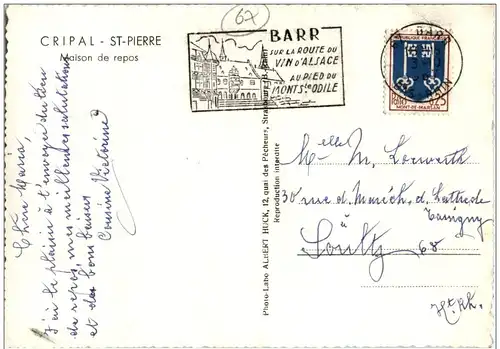 67
CRIPAL - ST-PIERRE
Maison de repos
BARR
SUR LA ROUTE DU
VIN D'ALSACE
AU PIED DU
MONT Ste ODILE
REPUBLIQUE FRANCAISE
0,25
MONT-DE-MARSAN
Chère Maria,
J'ai le plaisir à t'envoyer du lieu
de repos, mes meilleures salutations
et des bons baisers
Cousine Victorine
Photo-Labo ALBERT HUCK, 12, quai des Pêcheurs, Strasbourg
Reproduction interdite
Melle M. Lorwerth
30 rue d. Maréch. d. Lattre de
Tassigny
à
Soultz 68
Ht. Rh.